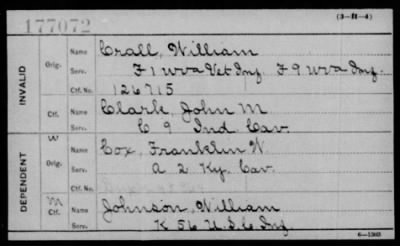 177072
(3—H—4)
INVALID
Orig.
Name Crall, William
Serv. F 1 W va Vet Inf. F 9 W va Inf.
Ctf. No. 126715
Ctf.
Name Clark, John M
Serv. C 9 Ind. Cav.
DEPENDENT
W
Orig.
Name Cox, Franklin W.
Serv. A 2 Ky. Cav.
Ctf. No.
M
Ctf.
Name Johnson, William
Serv. K 56 U.S.C Inf.